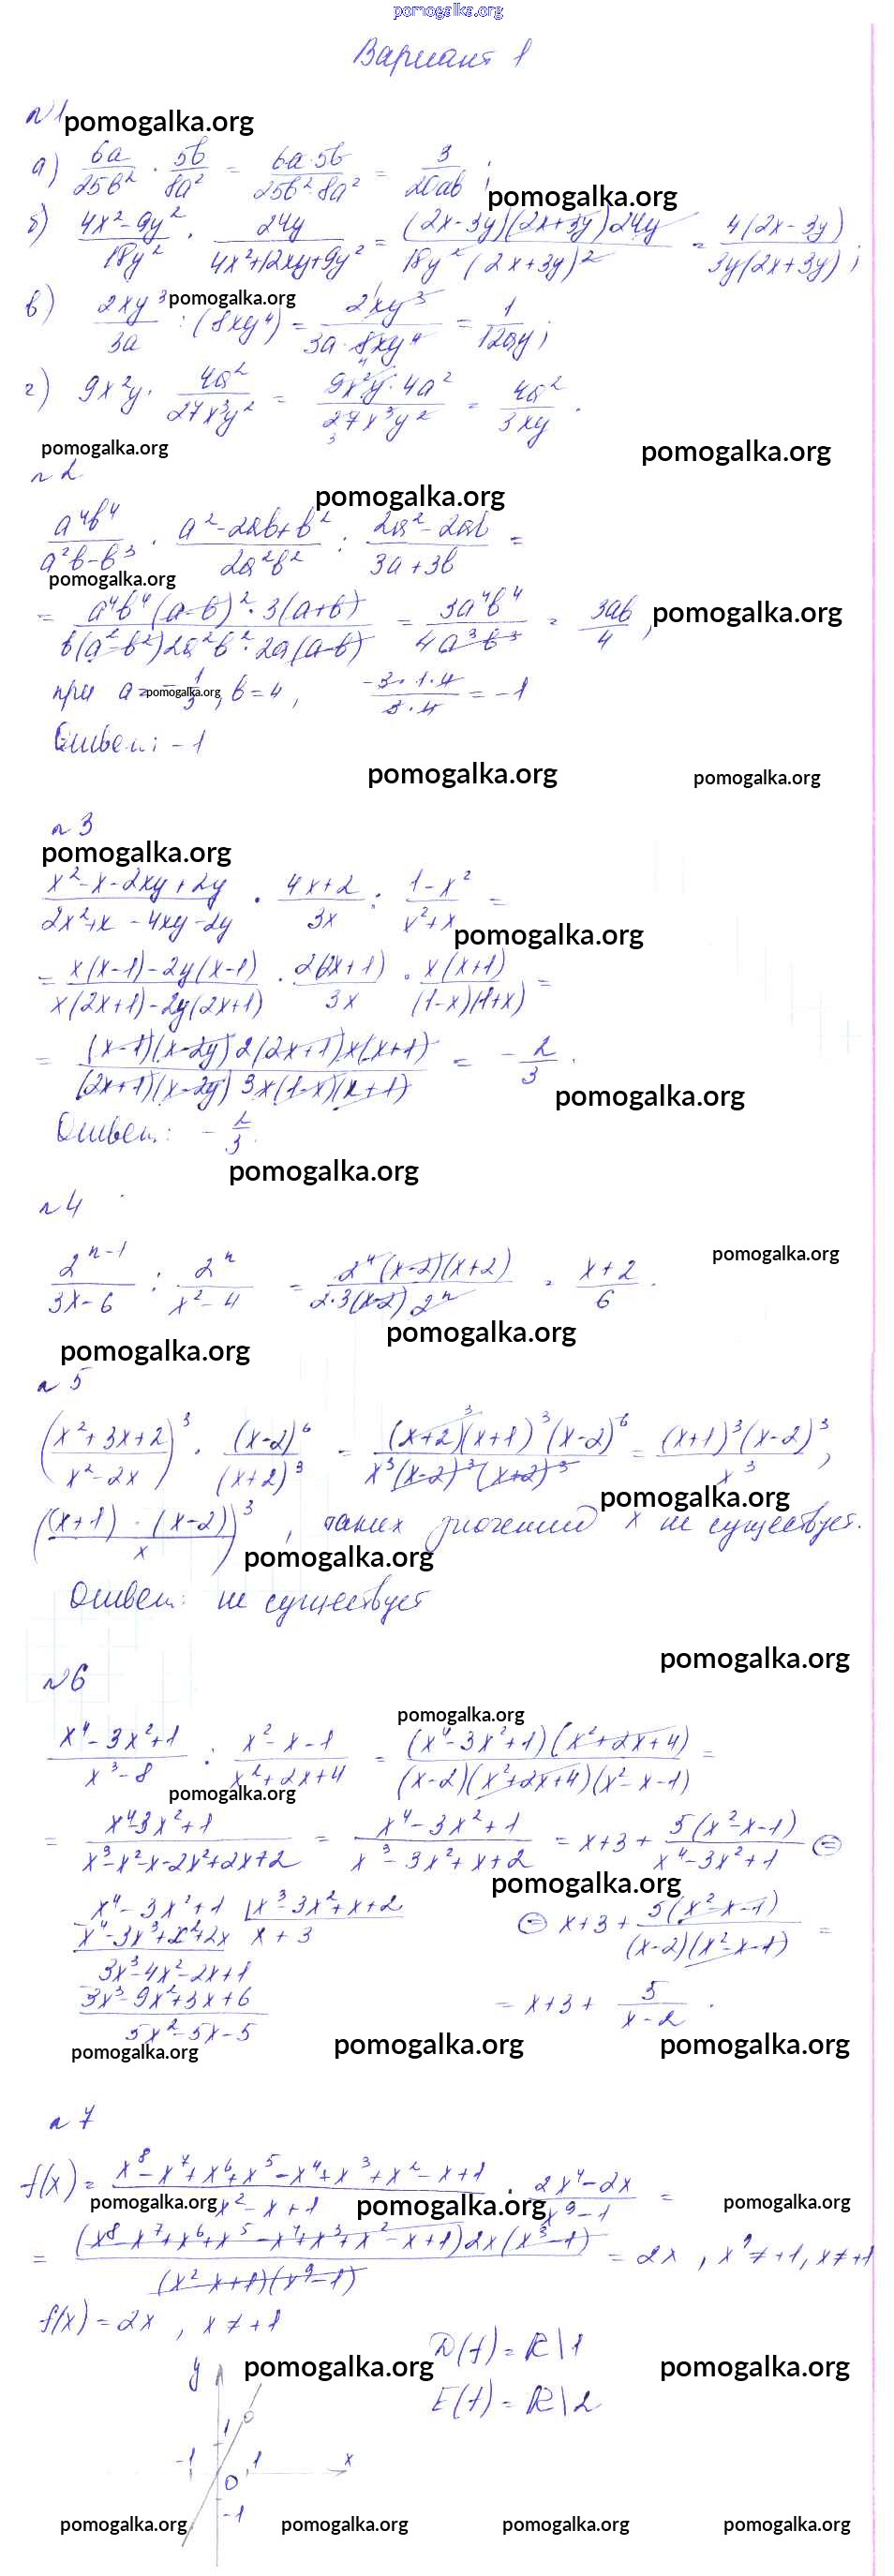 pomogalka.org
Вариант 1
№1 pomogalka.org
а) 6a/25b² · 5b/8a² = 6a·5b/25b²·8a² = 3/20ab ;
pomogalka.org
б) 4x²-9y²/18y² · 24y/4x²+12xy+9y² = (2x-3y)(2x+3y)24y/18y²(2x+3y)² = 4(2x-3y)/3y(2x+3y) ;
pomogalka.org
в) 2xy³/3a : (8xy⁴) = 2xy³/3a·8xy⁴ = 1/12ay ;
г) 9x²y · 4a²/27x³y² = 9x²y·4a²/27x³y² = 4a²/3xy .
pomogalka.org pomogalka.org
№2
pomogalka.org
a⁴b⁴/a²b-b³ · a²-2ab+b²/2a²b² : 2a²-2ab/3a+3b =
pomogalka.org
= a⁴b⁴(a-b)²·3(a+b)/b(a²-b²)2a²b²·2a(a-b) = 3a⁴b⁴/4a³b³ = 3ab/4 , pomogalka.org
при a=-1/3, b=4, -3·1·4/3·4 = -1
pomogalka.org
Ответ: -1
pomogalka.org pomogalka.org
№3
pomogalka.org
x²-x-2xy+2y/2x²+x-4xy-2y · 4x+2/3x : 1-x²/x²+x =
pomogalka.org
= x(x-1)-2y(x-1)/x(2x+1)-2y(2x+1) · 2(2x+1)/3x · x(x+1)/(1-x)(1+x) =
= (x-1)(x-2y)2(2x+1)x(x+1)/(2x+1)(x-2y)3x(1-x)(x+1) = -2/3 .
pomogalka.org
Ответ: -2/3.
pomogalka.org
№4
pomogalka.org
2ⁿ⁻¹/3x-6 : 2ⁿ/x²-4 = 2ⁿ(x-2)(x+2)/2·3(x-2)2ⁿ = x+2/6 .
pomogalka.org
pomogalka.org
№5
(x²+3x+2/x²-2x)³ · (x-2)⁶/(x+2)³ = (x+2)³(x+1)³(x-2)⁶/x³(x-2)³(x+2)³ = (x+1)³(x-2)³/x³ ,
pomogalka.org
((x+1)·(x-2)/x)³ , таких значений x не существует.
pomogalka.org
Ответ: не существует
pomogalka.org
№6
pomogalka.org
x⁴-3x²+1/x³-8 : x²-x-1/x²+2x+4 = (x⁴-3x²+1)(x²+2x+4)/(x-2)(x²+2x+4)(x²-x-1) =
pomogalka.org
= x⁴-3x²+1/x³-x²-x-2x²+2x+2 = x⁴-3x²+1/x³-3x²+x+2 = x+3+ 5(x²-x-1)/x⁴-3x²+1 =
pomogalka.org
x⁴-3x²+1 | x³-3x²+x+2
x⁴-3x³+x²+2x x+3
3x³-4x²-2x+1
3x³-9x²+3x+6
5x²-5x-5
= x+3+ 5(x²-x-1)/(x-2)(x²-x-1) =
= x+3+ 5/x-2 .
pomogalka.org pomogalka.org pomogalka.org
№7
f(x)= x⁸-x⁷+x⁶+x⁵-x⁴+x³+x²-x+1/x²-x+1 · 2x⁴-2x/x⁹-1 =
pomogalka.org pomogalka.org pomogalka.org
= (x⁸-x⁷+x⁶+x⁵-x⁴+x³+x²-x+1)2x(x³-1)/(x²-x+1)(x⁹-1) = 2x , x⁹≠+1, x≠+1
f(x)=2x , x≠+1
D(f)=R\1
y pomogalka.org pomogalka.org
E(f)=R\2
1
-1 1 x
0
-1
pomogalka.org pomogalka.org pomogalka.org pomogalka.org